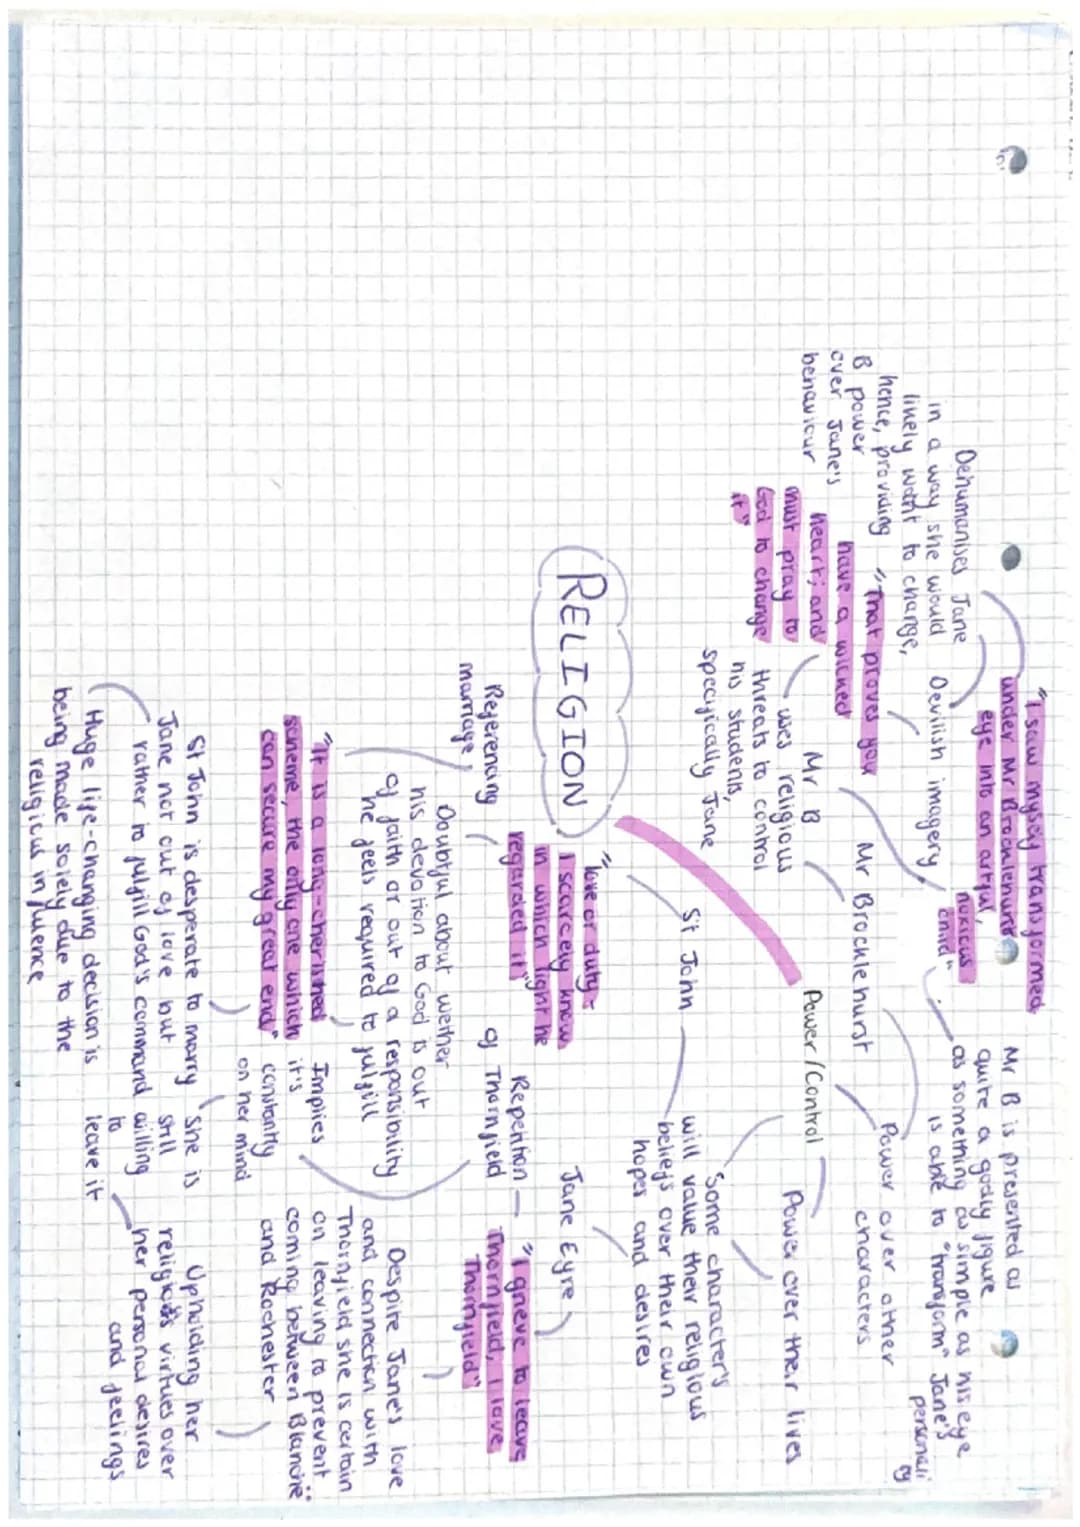 "I saw myself transformed
under Mr Brocklehurst's
eye into an artful,
noxious
child"
Mr B is presented as
quite a godly figure
as something as simple as his eye
is able to "transform" Jane's
personali
ty
Dehumanises Jane
in a way she would
likely want to change,
hence, providing
B power
over Jane's
behaviour
Devilish imagery
"That proves you
have a wicked
heart; and
must pray to
God to change
it"
Mr B
uses religious
threats to control
his students,
specifically Jane
Mr Brocklehurst
Power over other
characters
Power/Control
Power over their lives
Some character's
will value their religious
beliefs over their own
hopes and desires
RELIGION
St John
"love or duty -
I scarcely know
in which light he
regarded it"
Referencing
marriage
Doubtful about wether
his devotion to God is out
of faith or out of a responsibility
he feels required to fulfill
"It is a long-cherished
scheme, the only one which
can secure my great end"
St John is desperate to marry
Jane not out of love but
rather to fulfill God's command
Huge life-changing decision is
being made solely due to the
religious influence
Jane Eyre
"I grieve to leave
Thornfield, I love
Thornfield"
Repention
of Thornfield
Implies
it's
constantly
on her mind
She is
still
willing
to
leave it
Despite Jane's love
and connection with
Thornfield she is certain
on leaving to prevent
coming between Blanche
and Rochester
Upholding her
religious virtues over
her personal desires
and feelings